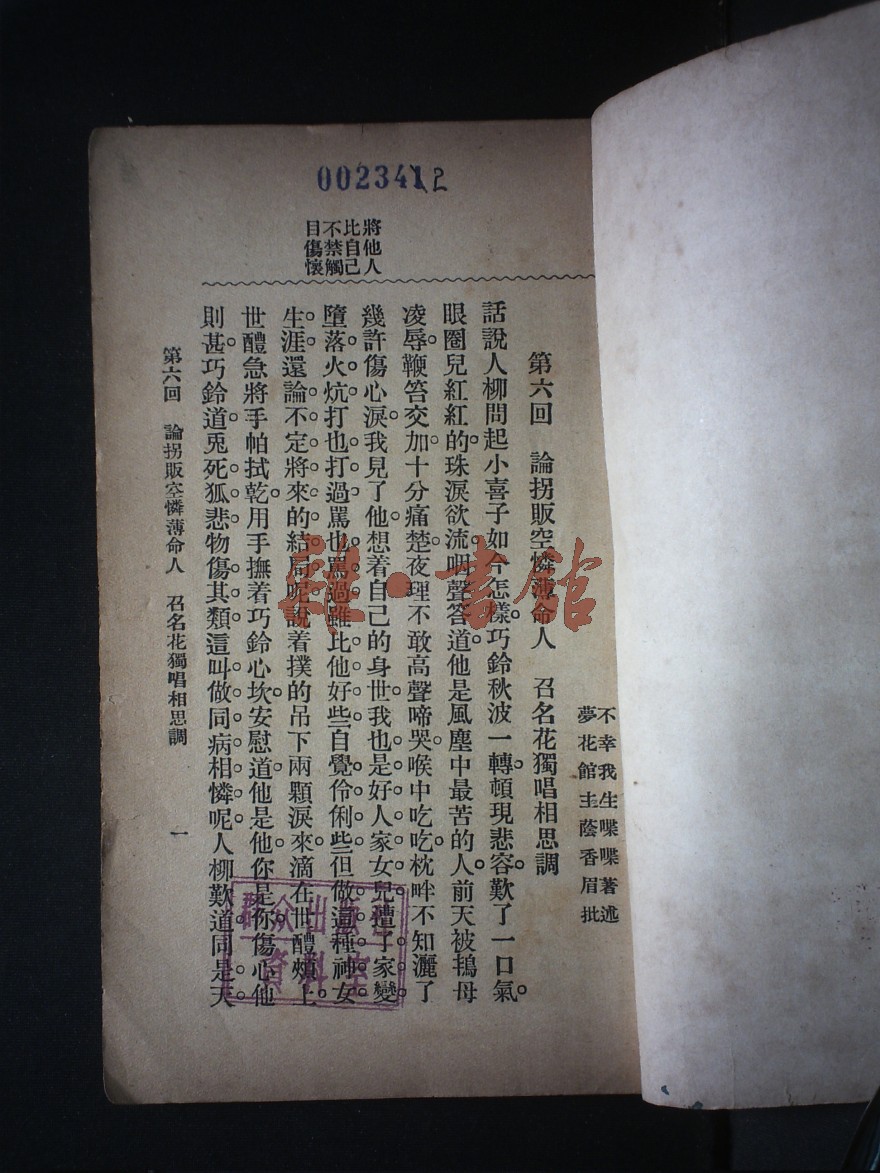 0023412
將他人
比自己
不禁觸
目傷懷
不幸我生喋喋著述
夢花館主蔭香眉批
第六回　論拐販空憐薄命人　召名花獨唱相思調
話說人柳問起小喜子如今怎樣。巧鈴秋波一轉。頓現悲容。歎了一口氣。
眼圈兒紅紅的。珠淚欲流。咽聲答道。他是風塵中最苦的人。前天被鴇母
凌辱。鞭笞交加。十分痛楚。夜理不敢高聲啼哭。喉中吃吃。枕畔不知灑了
幾許傷心淚。我見了他。想着自己的身世。我也是好人家女兒。遭了家變。
墮落火炕。打也打過。罵也罵過。雖比他好些。自覺伶俐些。但做這種神女
生涯。還論不定將來的結局呢。說着撲的吊下兩顆淚來。滴在世醴頰上。
世醴急將手帕拭乾。用手撫着巧鈴心坎。安慰道。他是他。你是你。傷心他
則甚。巧鈴道。兎死狐悲。物傷其類。這叫做同病相憐呢。人柳歎道。同是天
第六回　論拐販空憐薄命人　召名花獨唱相思調　一
群众出版社
資料室
雜·書館